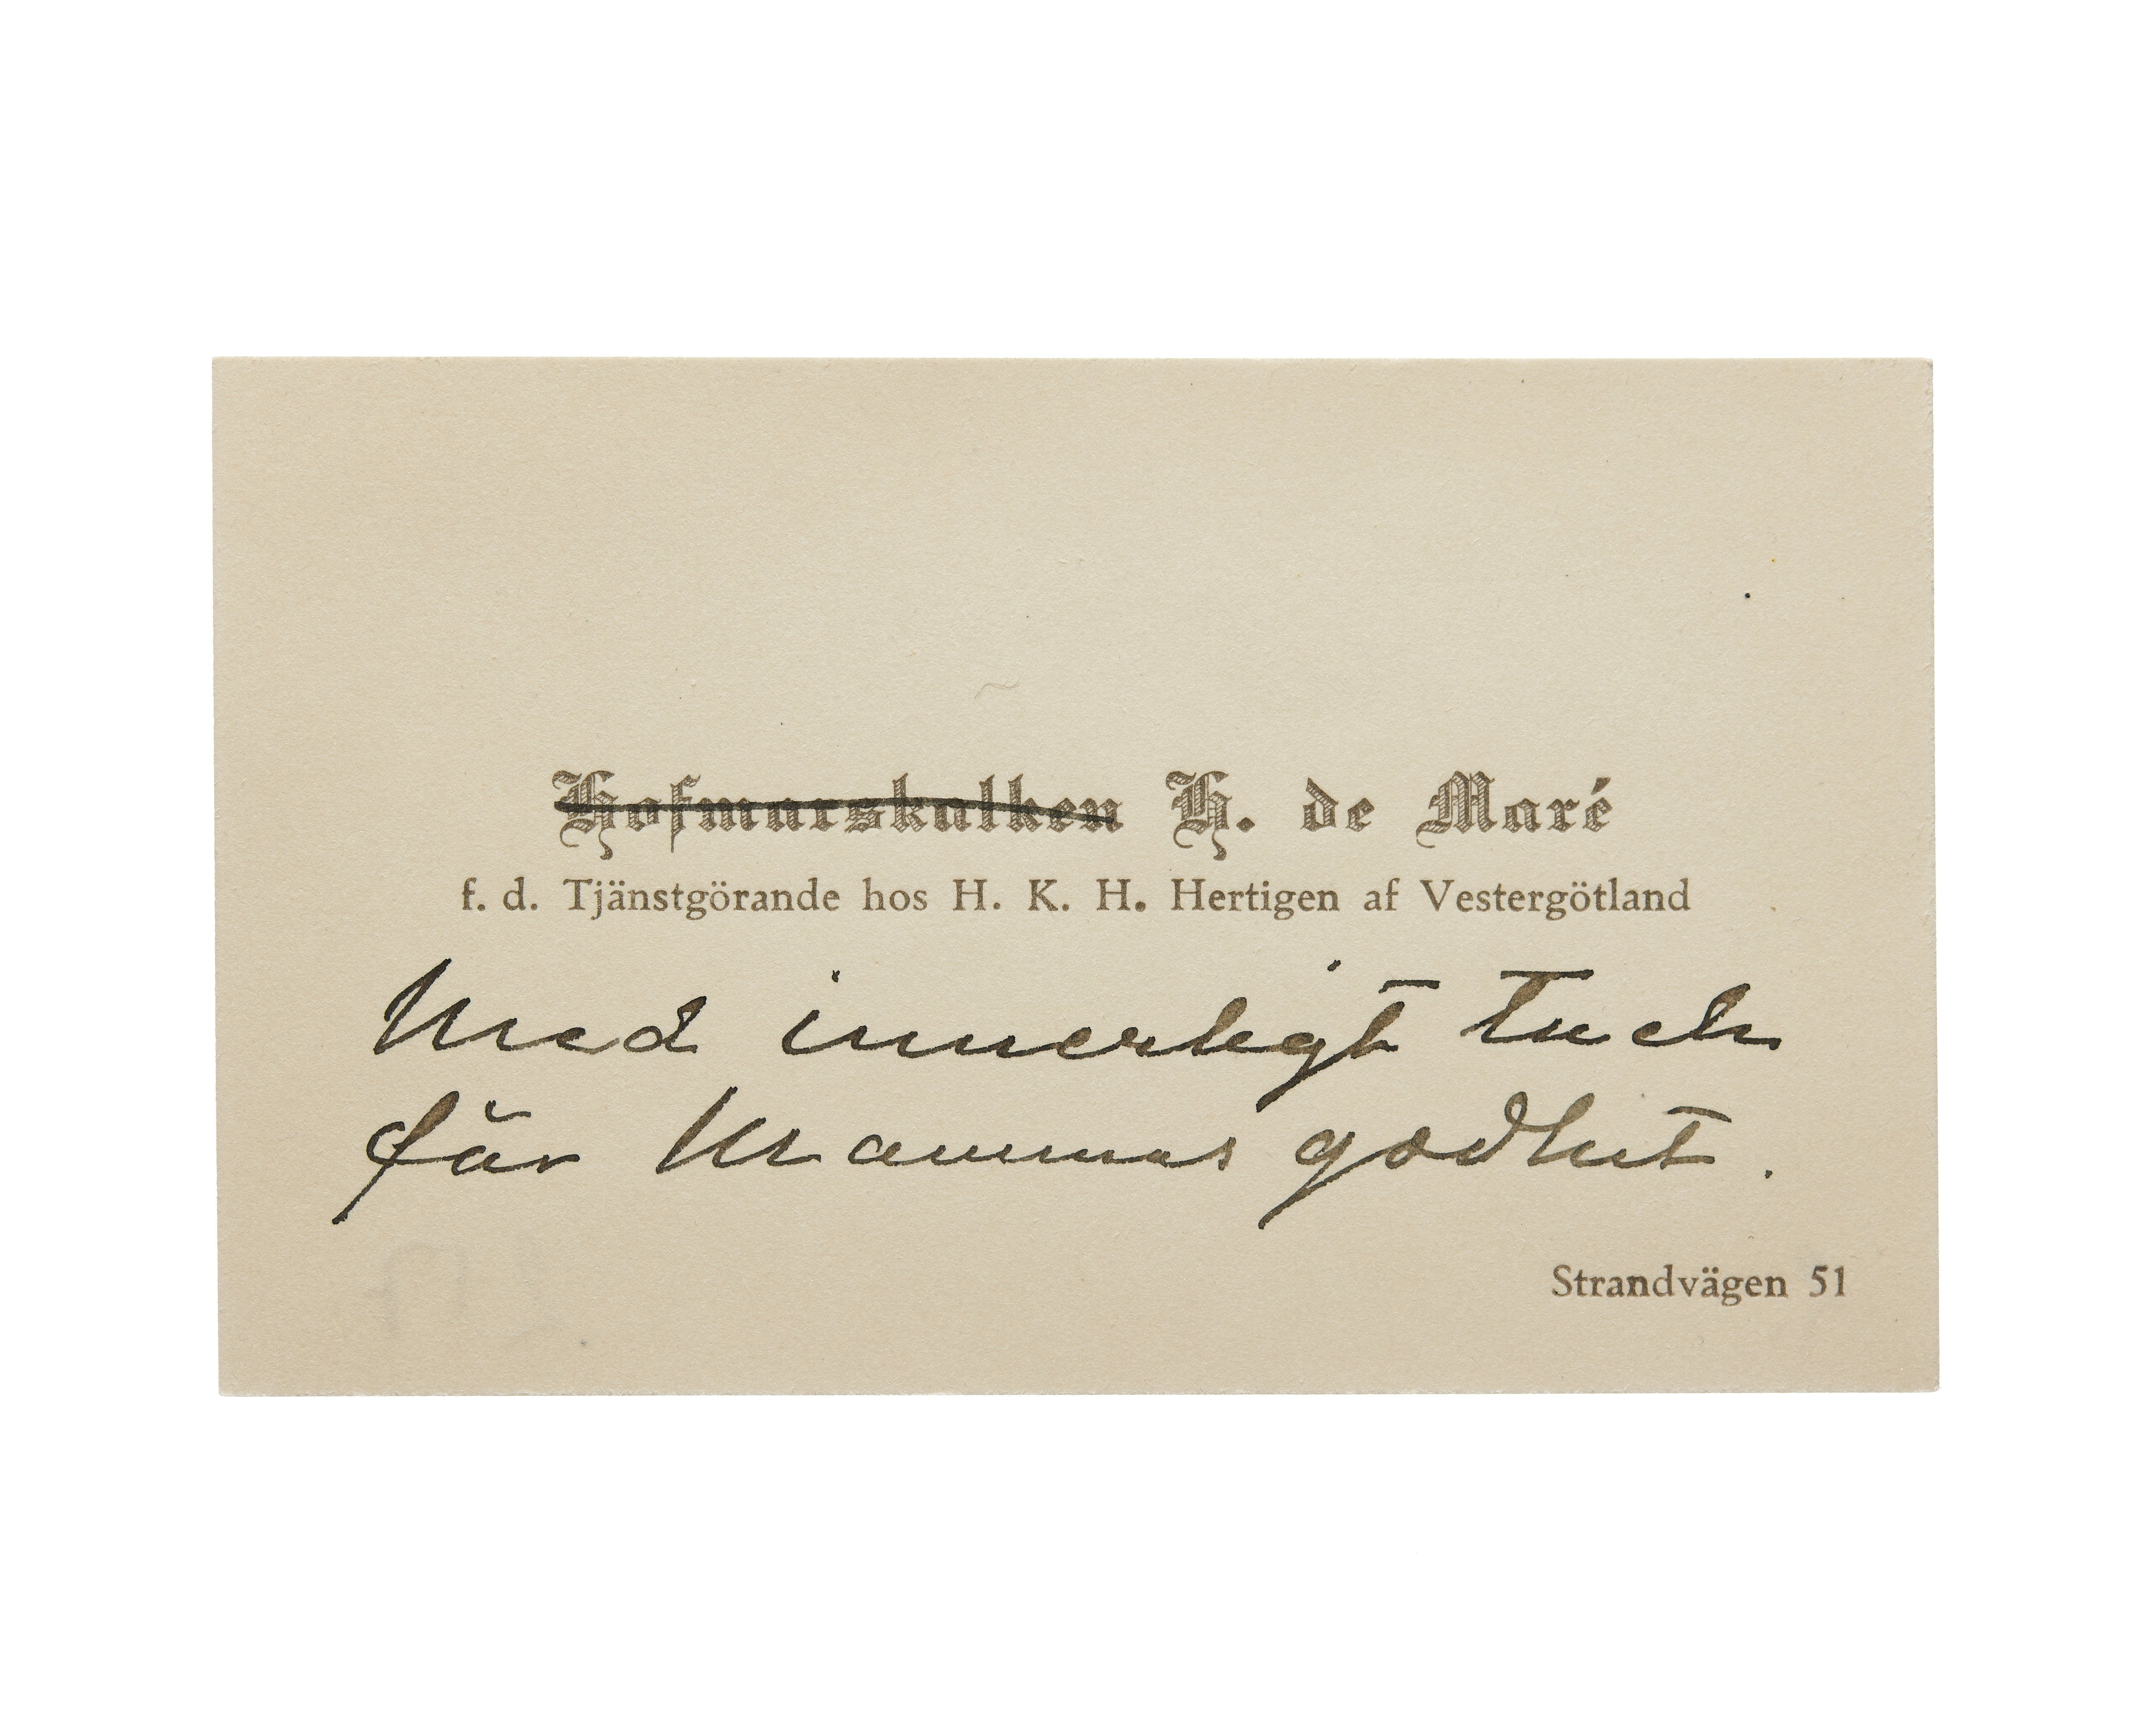 Hofmarskalken H. de Maré
f. d. Tjänstgörande hos H. K. H. Hertigen af Vestergötland
Med innerligt tack
för Mammas godhet.
Strandvägen 51